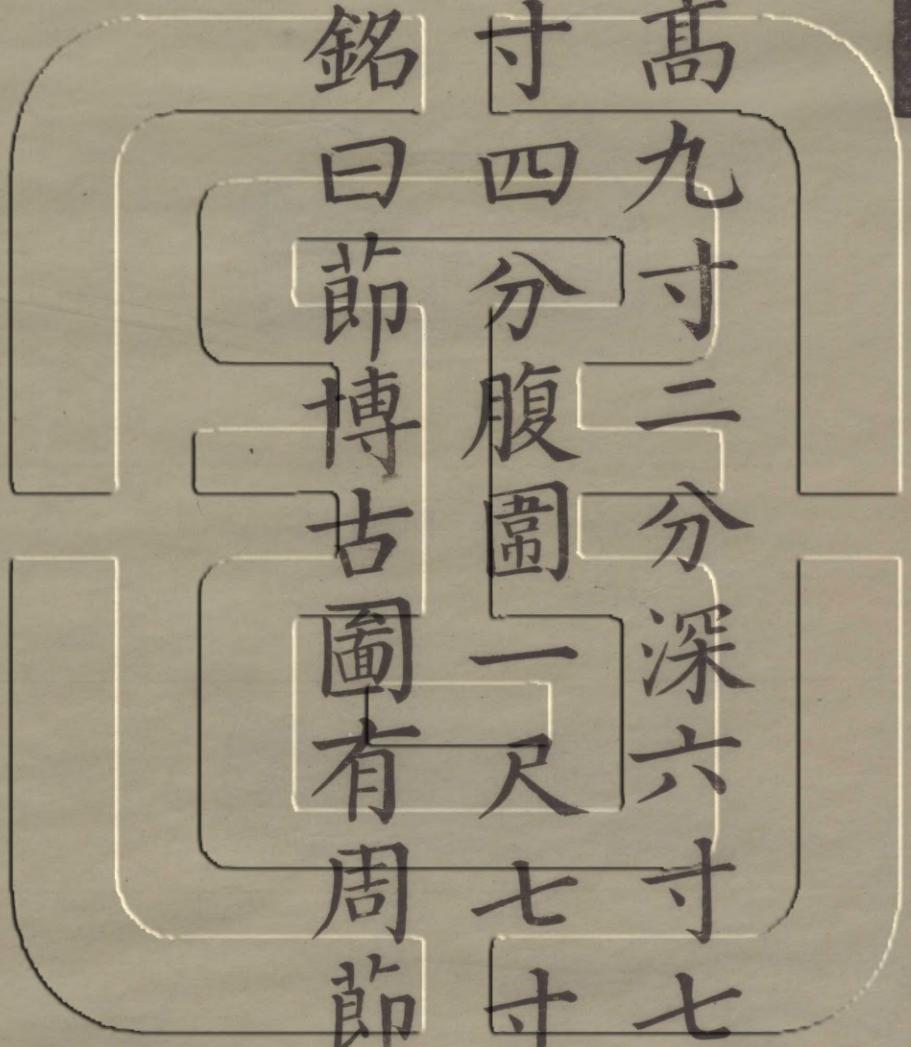 髙九寸二分深六寸七
寸四分腹圍一尺七寸
銘曰莭博古圖有周莭